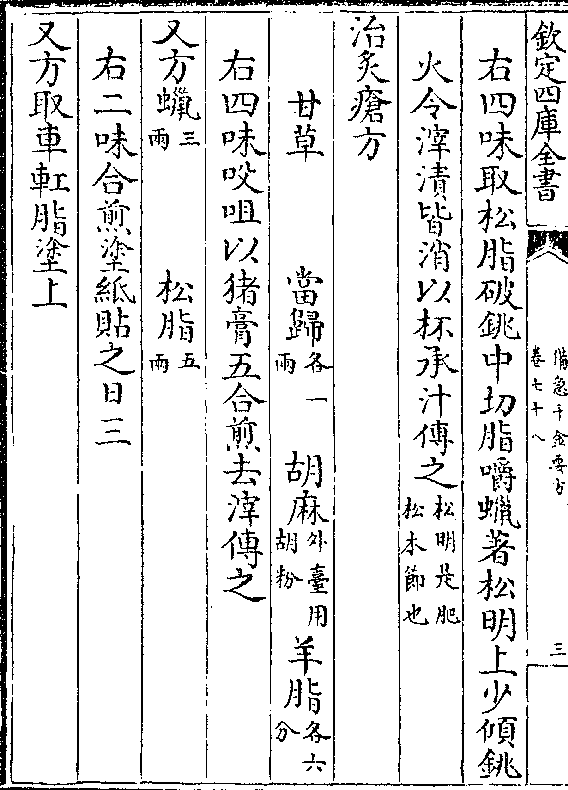 欽定四庫全書
備急千金要方
卷七十八
三
右四味取松脂破銚中切脂嚼蠟著松明上少傾銚
火令滓漬皆消以杯承汁傅之松明是肥松木節也
治炙瘡方
甘草 當歸各一兩 胡麻外臺用胡粉 羊脂各六分
右四味㕮咀以猪膏五合煎去滓傅之
又方蠟三兩 松脂五兩
右二味合煎塗紙貼之日三
又方取車䡏脂塗上